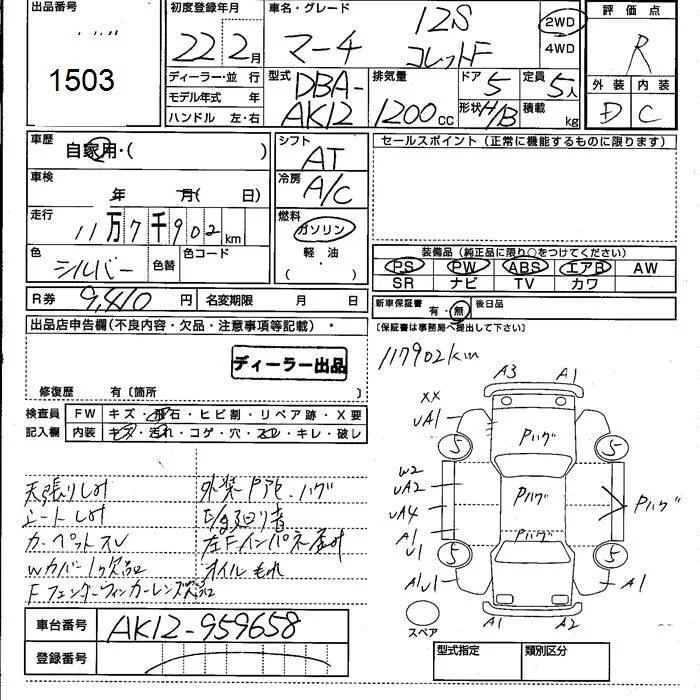 出品番号
1503
初度登録年月
22年2月
車名・グレード
マーチ
12S
コレットF
2WD
4WD
評価点
R
外装 内装
D C
ディーラー・並行
モデル年式 年
ハンドル 左・右
型式
DBA-
AK12
排気量
1200cc
ドア 5
形状 H/B
定員 5人
積載 kg
車歴
自家用・( )
車検
年 月( 日)
走行
11万7千902km
色
シルバー
色替
色コード
シフト
AT
冷房
A/C
燃料
ガソリン
軽油
( )
セールスポイント(正常に機能するものに限ります)
装備品(純正品に限り○をつけてください)
PS PW ABS エアB AW
SR ナビ TV カワ
R券 9,410円 名変期限 月 日
新車保証書 有・無 後日品
(保証書は事務局へ提出して下さい)
出品店申告欄(不良内容・欠品・注意事項等記載)
ディーラー出品
修復歴 有〔箇所 〕
検査員
記入欄
FW キズ・飛石・ヒビ割・リペア跡・X要
内装 キズ・汚れ・コゲ・穴・スレ・キレ・破レ
天張りしみ
シートしみ
カーペットスレ
Wカバー1欠品
Fフェンダーウィンカーレンズ欠品
外装Pアセ、ハゲ
左Fインパネ歪み
オイルもれ
車台番号 AK12-959658
登録番号
117902km
A3 A1
XX
UA1
5 5
Pハゲ
W2
UA2
UA4
A1
U1
Pハゲ
Pハゲ
Pハゲ
5 5
A1U1
A1
A1 A2
スペア
型式指定 類別区分